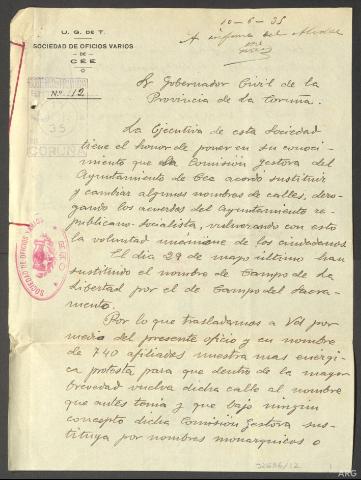 10-6-35
A informe del Alcalde
U. G. DE T.
SOCIEDAD DE OFICIOS VARIOS
DE
CÉE
N.º 12
35
CORUÑA
Sr Gobernador Civil de la
Provincia de la Coruña.
La Ejecutiva de esta Sociedad
tiene el honor de poner en su conoci-
miento que la Comisión gestora del
Ayuntamiento de Cea acordó sustituir
y cambiar algunos nombres de calles, dero-
gando los acuerdos del Ayuntamiento re-
publicano-socialista, vulnerando con esto
la voluntad unánime de los ciudadanos
El dia 29 de mayo último han
sustituido el nombre de Campo de la
Libertad por el de Campo del Sacra-
mento.
Por lo que trasladamos a Vd por
medio del presente oficio y en nombre
de 740 afiliados nuestra mas energi-
ca protesta para que dentro de la mayor
brevedad vuelva dicha calle al nombre
que antes tenia y que bajo ningun
concepto dicha Comisión gestora sus-
tituya por nombres monarquicos o
SOCIEDAD DE OFICIOS VARIOS
CÉE
32686/12
ARG